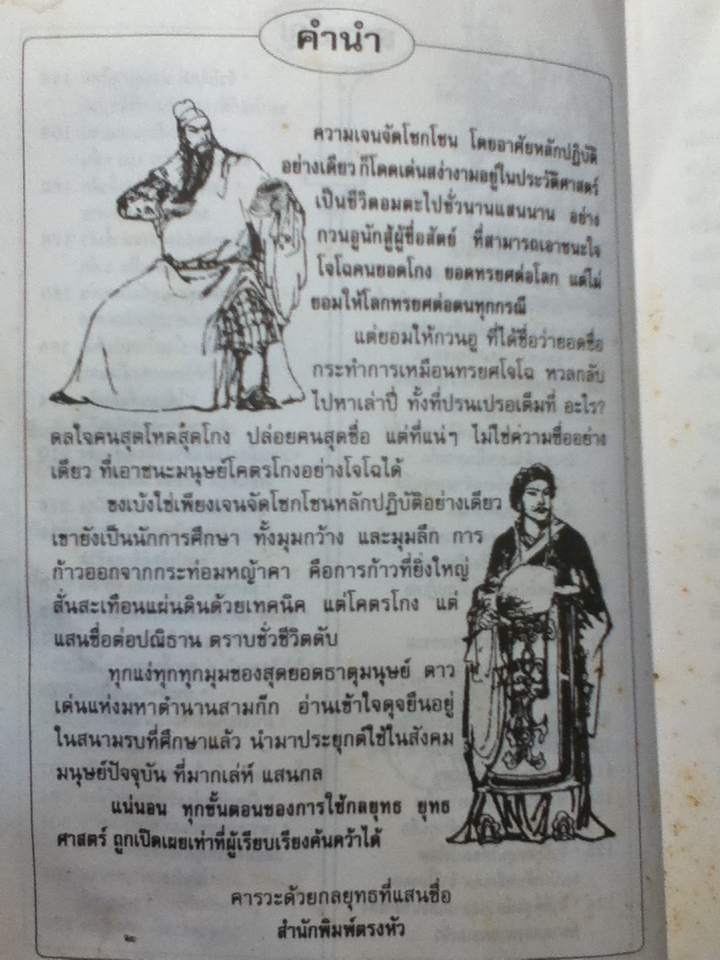 คำนำ
ความเจนจัดโชกโชน โดยอาศัยหลักปฏิบัติ
อย่างเดียว ก็โดดเด่นสง่างามอยู่ในประวัติศาสตร์
เป็นชีวิตอมตะไปชั่วนานแสนนาน อย่าง
กวนอูนักสู้ผู้ซื่อสัตย์ ที่สามารถเอาชนะใจ
โจโฉคนยอดโกง ยอดทรยศต่อโลก แต่ไม่
ยอมให้โลกทรยศต่อตนทุกกรณี
แต่ยอมให้กวนอู ที่ได้ชื่อว่ายอดซื่อ
กระทำการเหมือนทรยศโจโฉ หวลกลับ
ไปหาเล่าปี่ ทั้งที่ปรนเปรอเต็มที่ อะไร?
ดลใจคนสุดโหดสุดโกง ปล่อยคนสุดซื่อ แต่ที่แน่ๆ ไม่ใช่ความซื่ออย่าง
เดียว ที่เอาชนะมนุษย์โคตรโกงอย่างโจโฉได้
ขงเบ้งใช่เพียงเจนจัดโชกโชนหลักปฏิบัติอย่างเดียว
เขายังเป็นนักการศึกษา ทั้งมุมกว้าง และมุมลึก การ
ก้าวออกจากกระท่อมหญ้าคา คือการก้าวที่ยิ่งใหญ่
สั่นสะเทือนแผ่นดินด้วยเทคนิค แต่โคตรโกง แต่
แสนซื่อต่อปณิธาน ตราบชั่วชีวิตดับ
ทุกแง่ทุกทุกมุมของสุดยอดธาตุมนุษย์ ดาว
เด่นแห่งมหาตำนานสามก๊ก อ่านเข้าใจดุจยืนอยู่
ในสนามรบที่ศึกษาแล้ว นำมาประยุกต์ใช้ในสังคม
มนุษย์ปัจจุบัน ที่มากเล่ห์ แสนกล
แน่นอน ทุกขั้นตอนของการใช้กลยุทธ ยุทธ
ศาสตร์ ถูกเปิดเผยเท่าที่ผู้เรียบเรียงค้นคว้าได้
คารวะด้วยกลยุทธที่แสนซื่อ
สำนักพิมพ์ตรงหัว